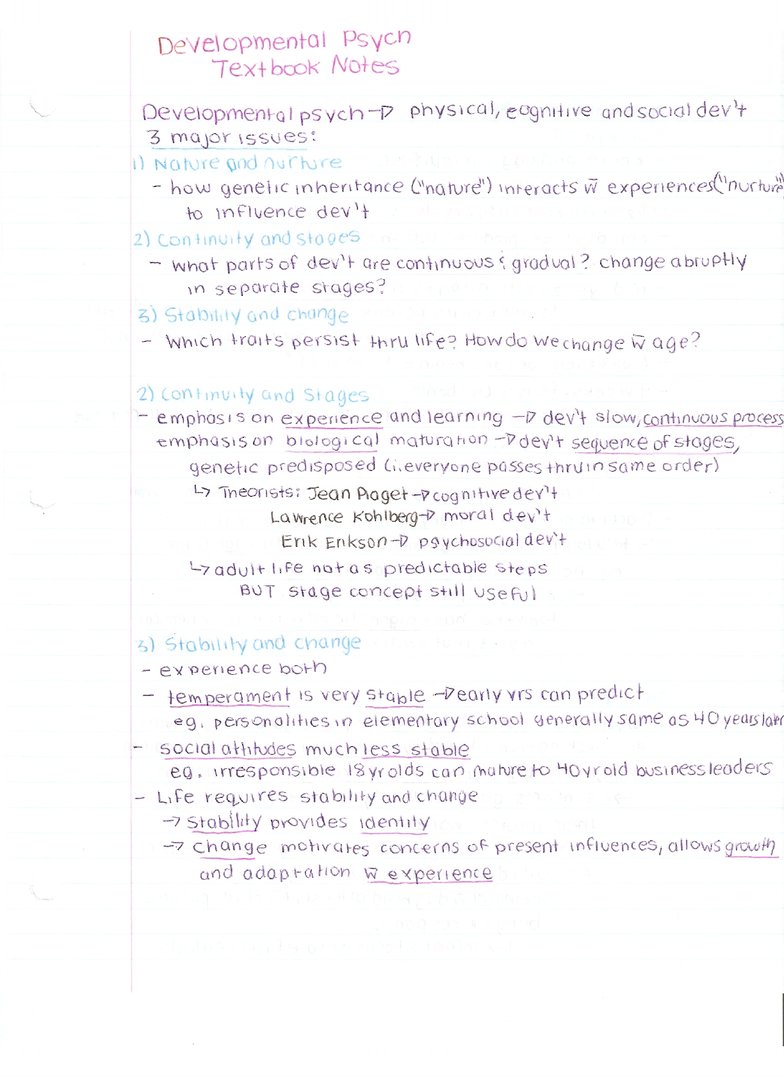 Developmental Psych
Textbook Notes
Developmental psych → physical, cognitive and social dev't
3 major issues:
1) Nature and nurture
- how genetic inheritance ("nature") interacts w̄ experiences ("nurture"
to influence dev't
2) Continuity and stages
- what parts of dev't are continuous & gradual? change abruptly
in separate stages?
3) Stability and change
- Which traits persist thru life? How do we change w̄ age?
2) Continuity and Stages
- emphasis on experience and learning → dev't slow, continuous process
emphasis on biological maturation → dev't sequence of stages,
genetic predisposed (i. everyone passes thru in same order)
↳ Theorists: Jean Piaget → cognitive dev't
Lawrence Kohlberg → moral dev't
Erik Erikson → psychosocial dev't
↳ adult life not as predictable steps
BUT stage concept still useful
3) Stability and change
- experience both
- temperament is very stable → early yrs can predict
eg. personalities in elementary school generally same as 40 years later
- social attitudes much less stable
eg. irresponsible 18 yr olds can mature to 40 yr old business leaders
- Life requires stability and change
→ Stability provides identity
→ Change motivates concerns of present influences, allows growth
and adaptation w̄ experience